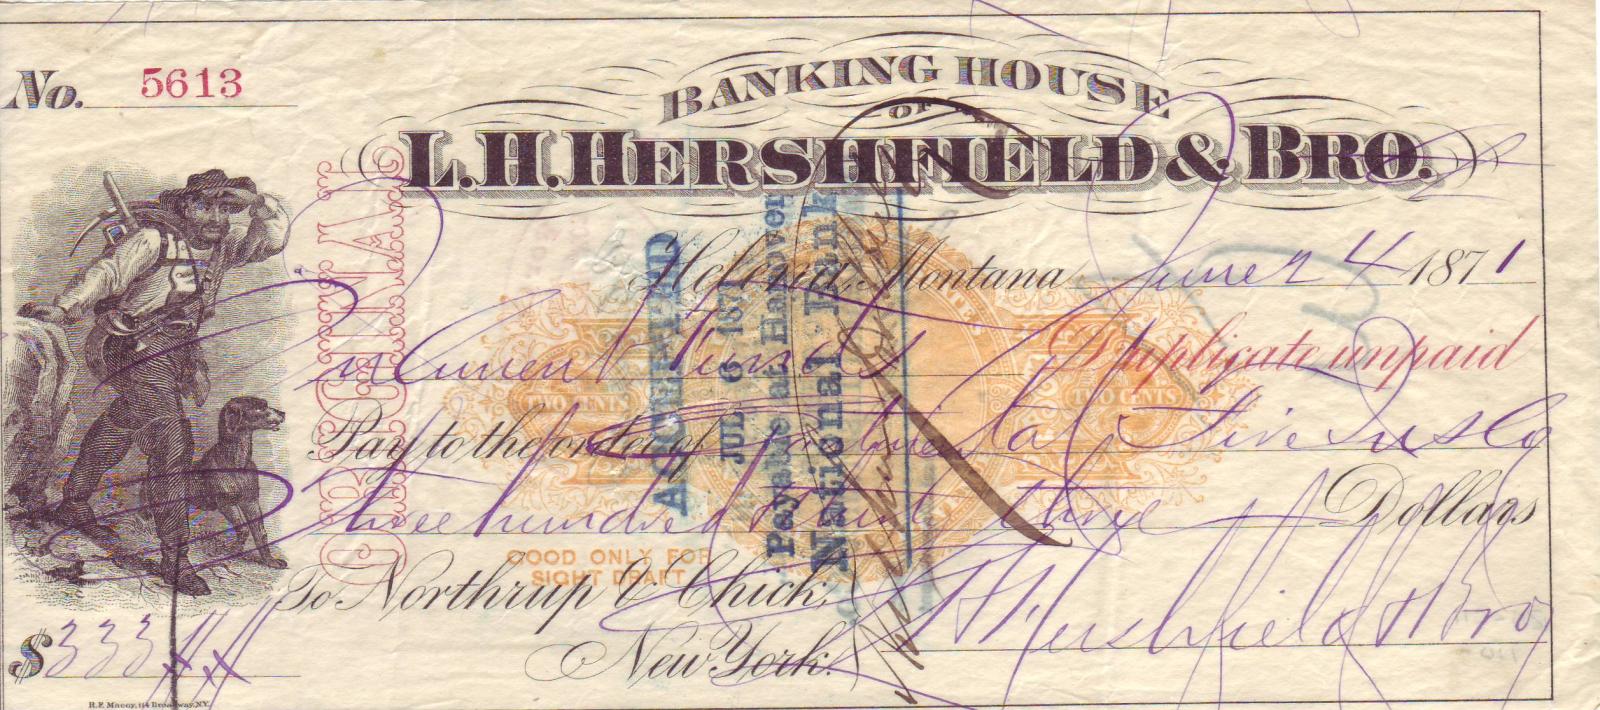 No. 5613
BANKING HOUSE
OF
L.H. HERSHFIELD & BRO.
ORIGINAL
Helena, Montana June 24 1871
In Current Funds Duplicate unpaid
TWO CENTS TWO CENTS
Pay to the order of Fire Ins Co
Three hundred thirty three Dollars
GOOD ONLY FOR
SIGHT DRAFT
To Northrup & Chick,
New York.
L H Hershfield & Bro
$333
ACCEPTED
JUL 6 187
Payable at Hanover
National Bank
R.F. Macoy, 114 Broadway, N.Y.